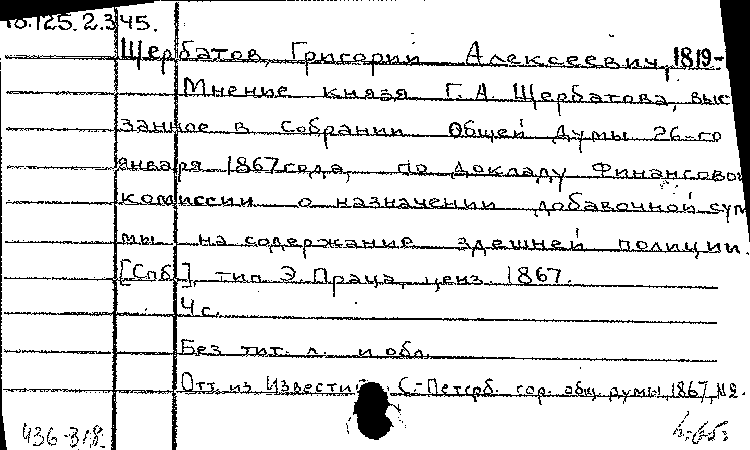 18.125.2.345.
Щербатов, Григорий Алексеевич, 1819-
Мнение князя Г. А. Щербатова, выс
занное в Собрании Общей Думы 26-го
января 1867 года, по докладу Финансовой
комиссии о назначении добавочной сум
мы на содержание здешней полиции.
[Спб.], тип. Э. Праца, ценз. 1867.
4 с.
Без тит. л. и обл.
Отт. из Известий С.-Петерб. гор. общ. думы, 1867, №2.
436-318